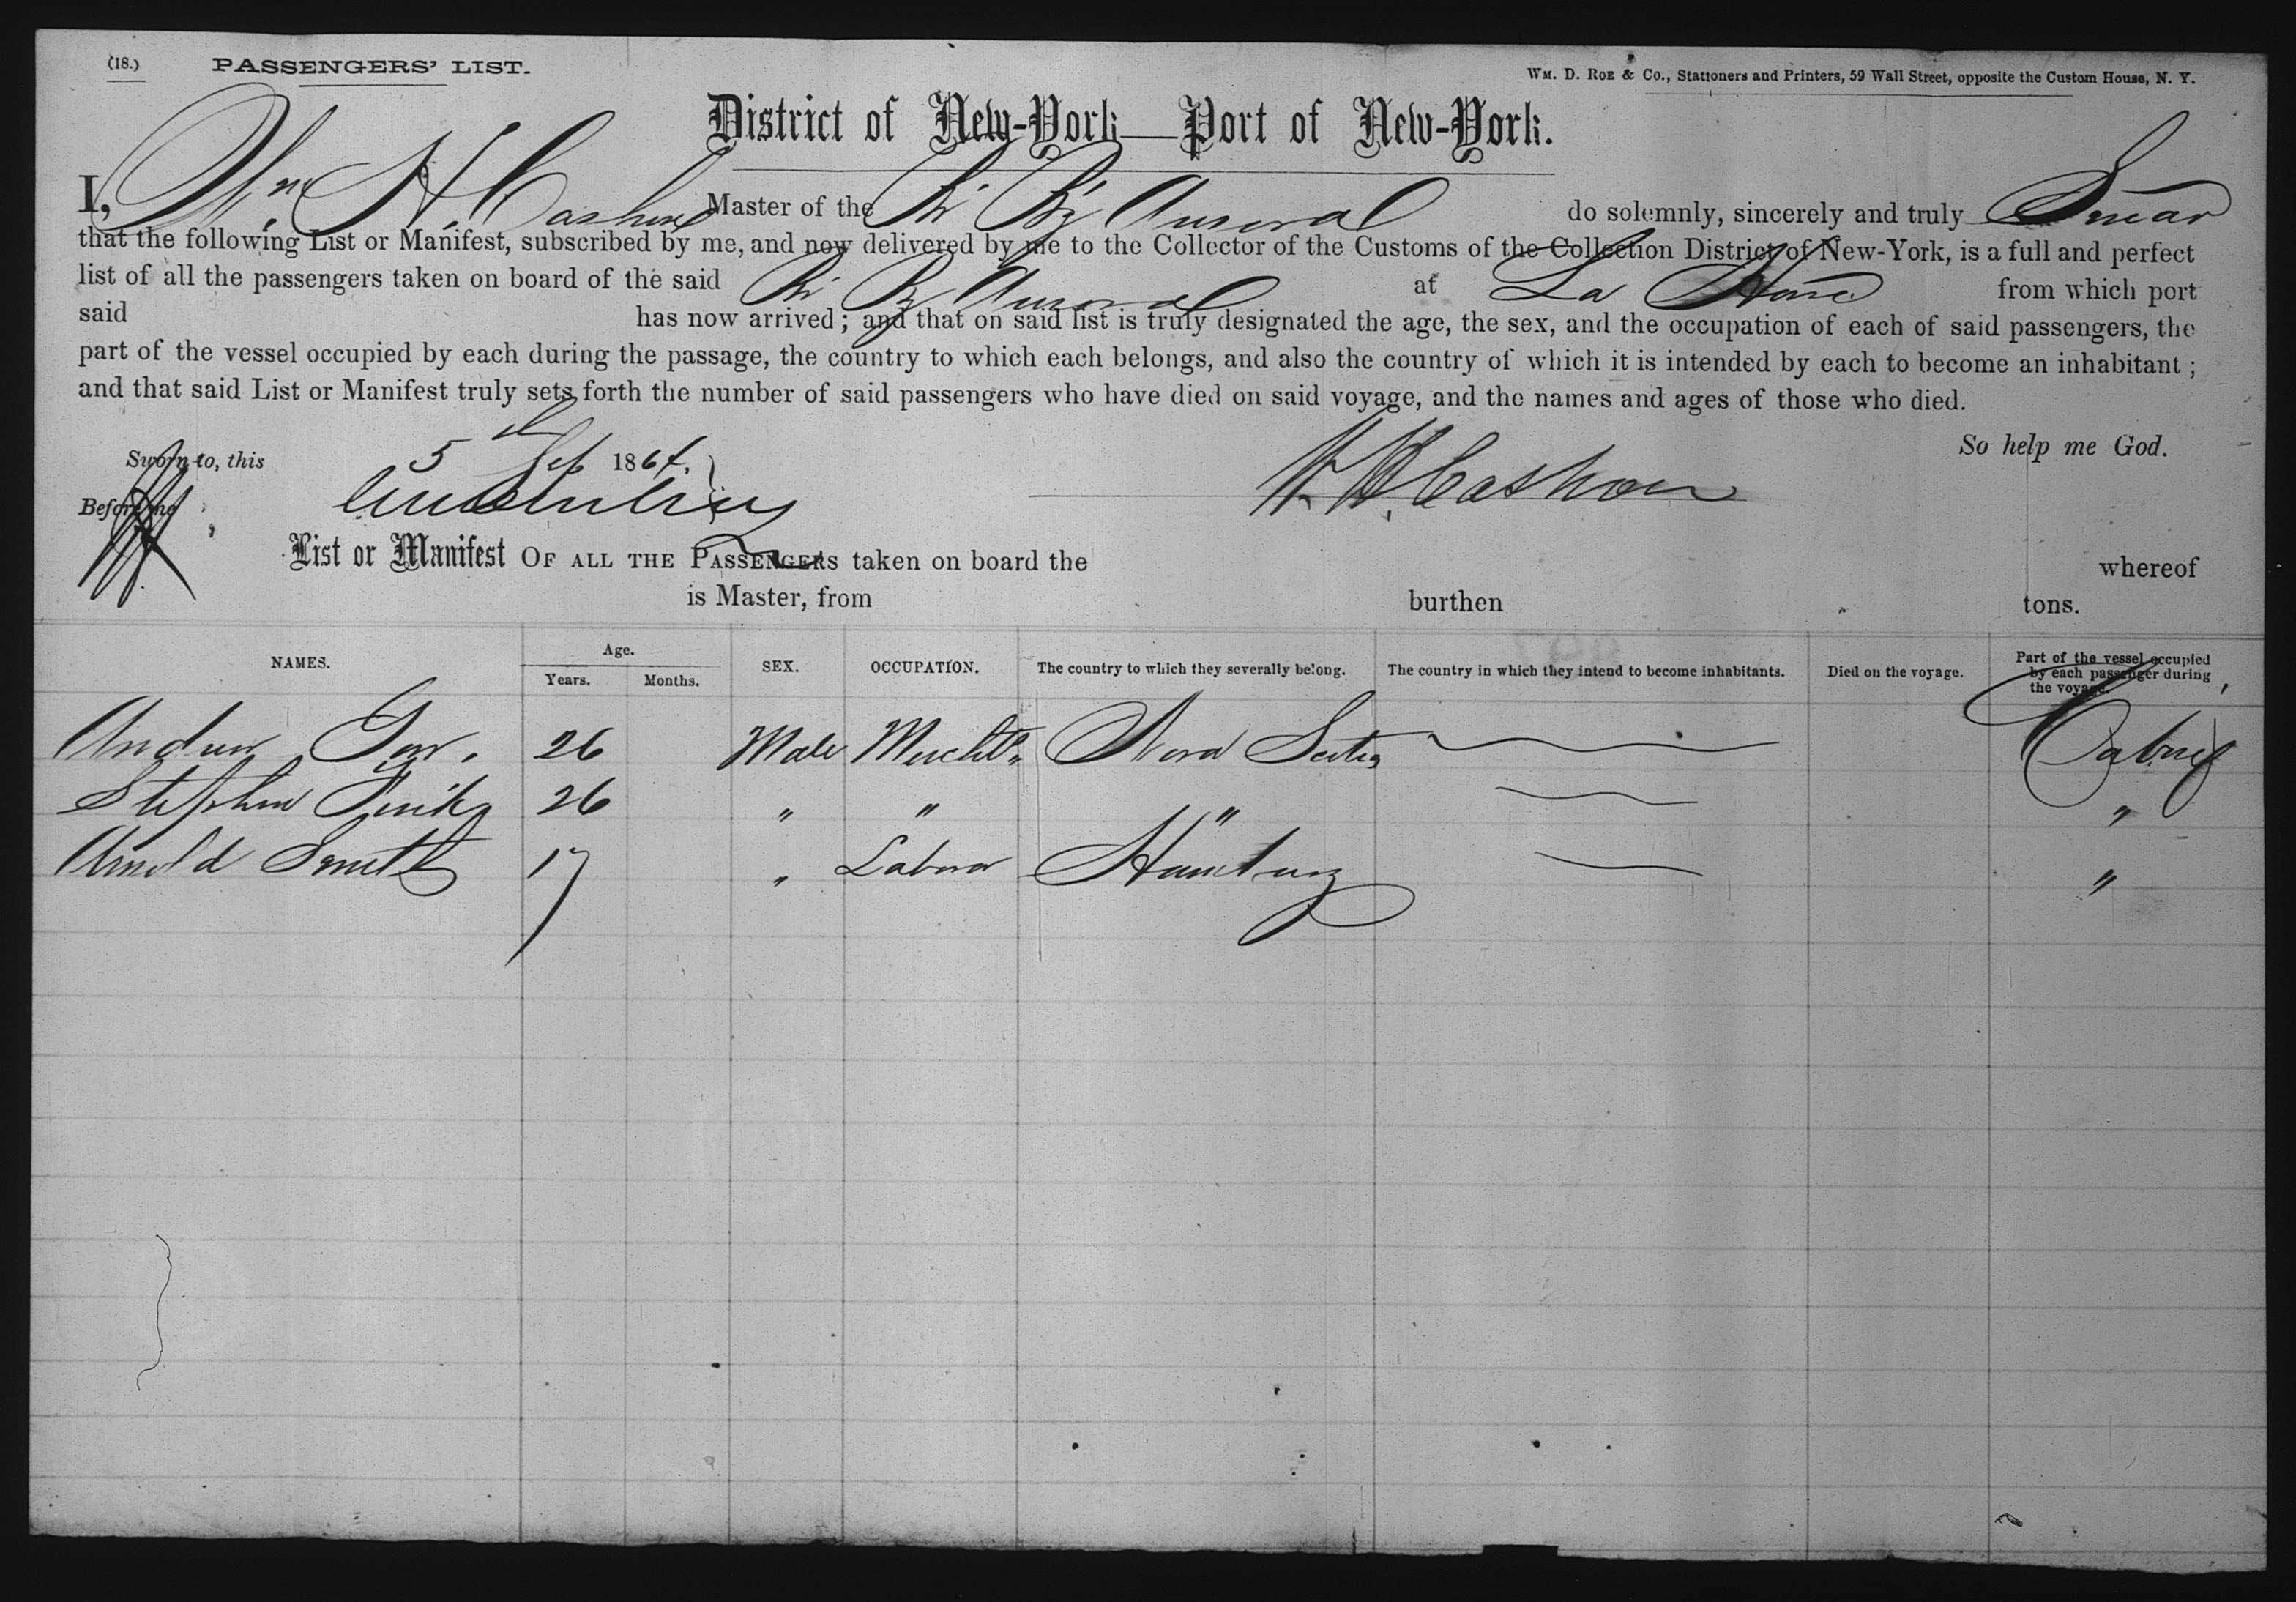 (18.) PASSENGERS' LIST.
WM. D. ROE & Co., Stationers and Printers, 59 Wall Street, opposite the Custom House, N. Y.
District of New-York—Port of New-York.
I, Wm H. Cashon Master of the Br Bg Auroral do solemnly, sincerely and truly Swear
that the following List or Manifest, subscribed by me, and now delivered by me to the Collector of the Customs of the Collection District of New-York, is a full and perfect
list of all the passengers taken on board of the said Br Bg Auroral at La from which port
said has now arrived; and that on said list is truly designated the age, the sex, and the occupation of each of said passengers, the
part of the vessel occupied by each during the passage, the country to which each belongs, and also the country of which it is intended by each to become an inhabitant;
and that said List or Manifest truly sets forth the number of said passengers who have died on said voyage, and the names and ages of those who died.
So help me God.
Sworn to, this 5th Sep 1864.
Before me W H Cashon
List or Manifest OF ALL THE PASSENGERS taken on board the whereof
is Master, from burthen tons.
NAMES. Age. Years. Months. SEX. OCCUPATION. The country to which they severally belong. The country in which they intend to become inhabitants. Died on the voyage. Part of the vessel occupied by each passenger during the voyage.
Andrew 26 Male Merchts Nova Scotia Cabin
Stephen 26 " " " "
Arnold Smith 17 " Labour Hamburg "